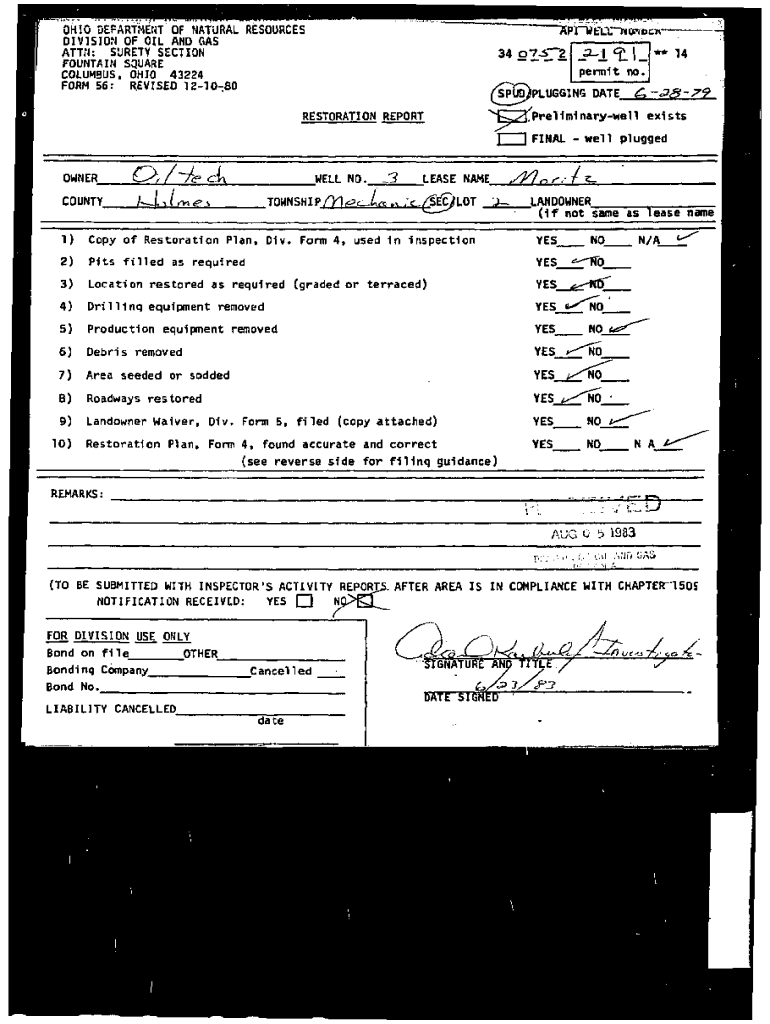 OHIO DEPARTMENT OF NATURAL RESOURCES
DIVISION OF OIL AND GAS
ATTN: SURETY SECTION
FOUNTAIN SQUARE
COLUMBUS, OHIO 43224
FORM 56: REVISED 12-10-80
API WELL NUMBER
34 0752 2191 ** 14
permit no.
SPUD/PLUGGING DATE 6-28-79
RESTORATION REPORT
Preliminary-well exists
FINAL - well plugged
OWNER Oiltech WELL NO. 3 LEASE NAME Moritz
COUNTY Holmes TOWNSHIP Mechanic SEC/LOT 2 LANDOWNER
(if not same as lease name
1) Copy of Restoration Plan, Div. Form 4, used in inspection YES NO N/A ✓
2) Pits filled as required YES ✓ NO
3) Location restored as required (graded or terraced) YES ✓ NO
4) Drilling equipment removed YES ✓ NO
5) Production equipment removed YES NO ✓
6) Debris removed YES ✓ NO
7) Area seeded or sodded YES ✓ NO
8) Roadways restored YES ✓ NO
9) Landowner Waiver, Div. Form 5, filed (copy attached) YES NO ✓
10) Restoration Plan, Form 4, found accurate and correct YES NO N A ✓
(see reverse side for filing guidance)
REMARKS:
AUG 05 1983
OIL AND GAS
(TO BE SUBMITTED WITH INSPECTOR'S ACTIVITY REPORTS AFTER AREA IS IN COMPLIANCE WITH CHAPTER 1509
NOTIFICATION RECEIVED: YES NO
FOR DIVISION USE ONLY
Bond on file OTHER
Bonding Company Cancelled
Bond No.
LIABILITY CANCELLED
date
SIGNATURE AND TITLE
6/23/83
DATE SIGNED